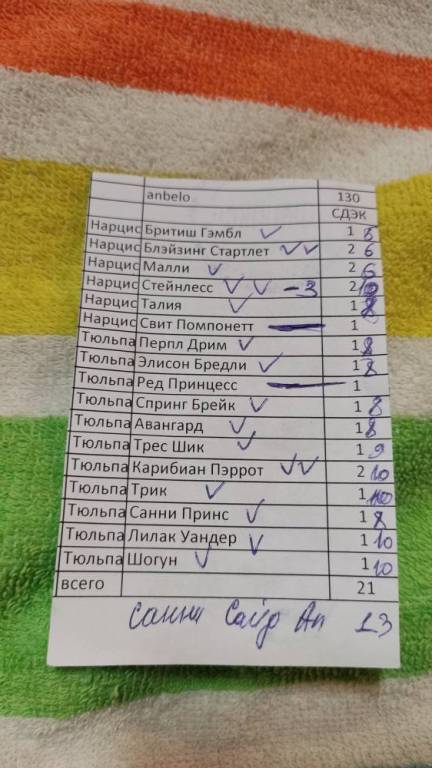 anbelo 130
СДЭК
Нарцис Бритиш Гэмбл 1 8
Нарцис Блэйзинг Стартлет 2 6
Нарцис Малли 2 6
Нарцис Стейнлесс -3 2
Нарцис Талия 1 8
Нарцис Свит Помпонетт 1
Тюльпа Перпл Дрим 1 8
Тюльпа Элисон Бредли 1 8
Тюльпа Ред Принцесс 1
Тюльпа Спринг Брейк 1 8
Тюльпа Авангард 1 8
Тюльпа Трес Шик 1 9
Тюльпа Карибиан Пэррот 2 10
Тюльпа Трик 1 10
Тюльпа Санни Принс 1 8
Тюльпа Лилак Уандер 1 10
Тюльпа Шогун 1 10
всего 21
Санни Сайд Ап 13